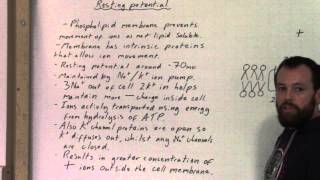 Resting potential
- Phospholipid membrane prevents
movement of ions as not lipid soluble.
- Membrane has intrinsic proteins
that allow ion movement.
- Resting potential around -70mv
- Maintained by Na+/K+ ion pump.
- 3Na+ out of cell 2K+ in helps
maintain more - charge inside cell.
- Ions actively transported using energy
from hydrolysis of ATP.
- Also K+ channel proteins are open so
K+ diffuses out, whilst any Na+ channels
are closed.
- Results in greater concentration of
+ ions outside the cell membrane.
+